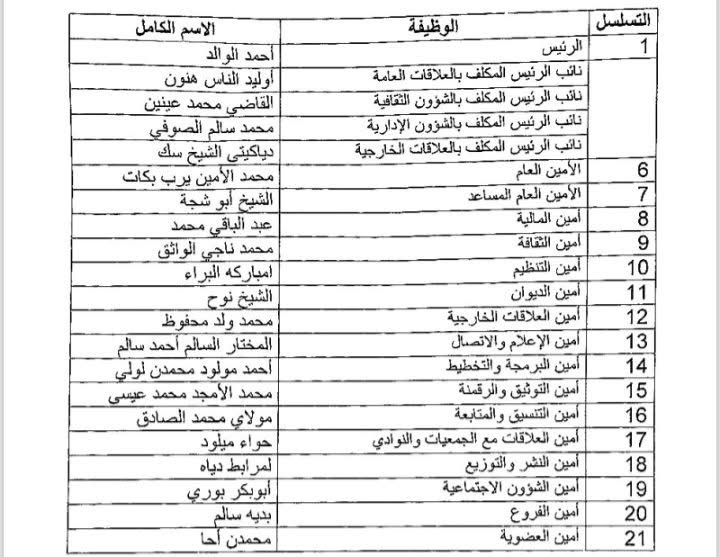 التسلسل الوظيفة الاسم الكامل
1 الرئيس أحمد الوالد
نائب الرئيس المكلف بالعلاقات العامة أوليد الناس هنون
نائب الرئيس المكلف بالشؤون الثقافية القاضي محمد عينين
نائب الرئيس المكلف بالشؤون الإدارية محمد سالم الصوفي
نائب الرئيس المكلف بالعلاقات الخارجية دياكيتي الشيخ سك
6 الأمين العام محمد الأمين يرب بكات
7 الأمين العام المساعد الشيخ أبو شجة
8 أمين المالية عبد الباقي محمد
9 أمين الثقافة محمد ناجي الواثق
10 أمين التنظيم امباركه البراء
11 أمين الديوان الشيخ نوح
12 أمين العلاقات الخارجية محمد ولد محفوظ
13 أمين الإعلام والاتصال المختار السالم أحمد سالم
14 أمين البرمجة والتخطيط أحمد مولود محمدن لولي
15 أمين التوثيق والرقمنة محمد الأمجد محمد عيسى
16 أمين التنسيق والمتابعة مولاي محمد الصادق
17 أمين العلاقات مع الجمعيات والنوادي حواء ميلود
18 أمين النشر والتوزيع لمرابط دياه
19 أمين الشؤون الاجتماعية أبوبكر بوري
20 أمين الفروع بديه سالم
21 أمين العضوية محمدن أحا